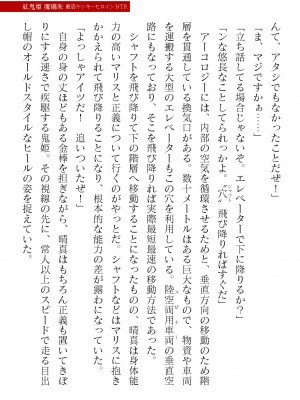 紅鬼姫 魔璃朱 最恐ヤンキーヒロインNTR
んて、アタシでもなかったことだぜ！」
「ま、マジですかぁ……」
「立ち話してる場合じゃないぞ。エレベーターで下に降りるか？」
「ンな悠長なことしてられっかよ。穴、飛び降りればすぐだ」
アーコロジーには、内部の空気を循環させるためと、垂直方向の移動のため階
層を貫通している換気口がある。数十メートルはある巨大なもので、物資や車両
を運搬する大型のエレベーターもこの穴を利用している。陸空両用車両の垂直空
路にもなっており、そこを飛び降りれば実際最短最速の移動方法であった。
シャフトを飛び降りて下の階層へ移動することになったものの、晴真は身体能
力の高いマリスと正義についていくのがやっとだ。シャフトなどはマリスに抱き
かかえられて飛び降りることになり、根本的な能力の差が露わになっていた。
「よっしゃアイツだ！　追いついたぜ！」
自身の身の丈ほどもある金棒を担ぎながら、晴真はもちろん正義も置いてきぼ
りにする速さで疾走する鬼姫。その視線の先に、常人以上のスピードで走る目出
し帽のオールドスタイルなヒールの姿を捉えていた。